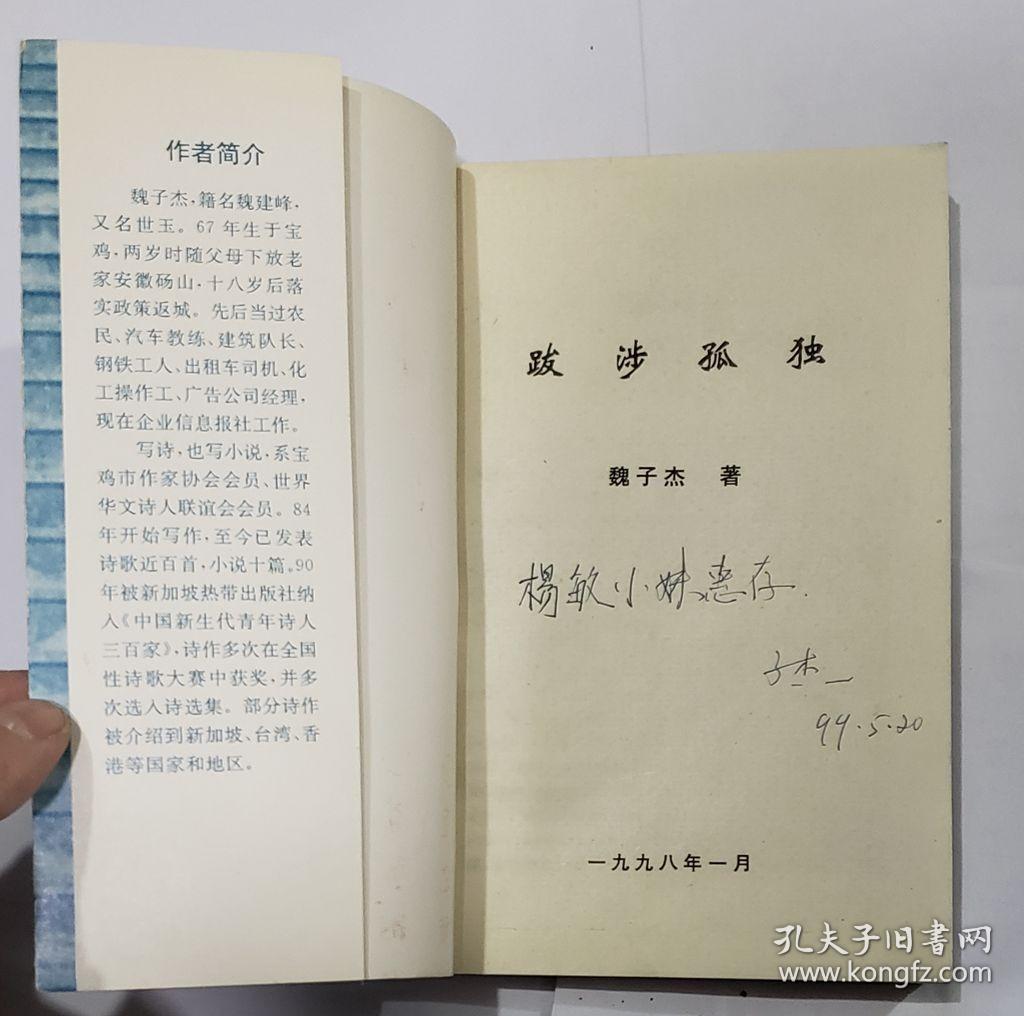 作者简介
魏子杰，籍名魏建峰，
又名世玉。67年生于宝
鸡，两岁时随父母下放老
家安徽砀山，十八岁后落
实政策返城。先后当过农
民、汽车教练、建筑队长、
钢铁工人、出租车司机、化
工操作工、广告公司经理，
现在企业信息报社工作。
写诗，也写小说，系宝
鸡市作家协会会员、世界
华文诗人联谊会会员。84
年开始写作，至今已发表
诗歌近百首，小说十篇。90
年被新加坡热带出版社纳
入《中国新生代青年诗人
三百家》，诗作多次在全国
性诗歌大赛中获奖，并多
次选入诗选集。部分诗作
被介绍到新加坡、台湾、香
港等国家和地区。
跋涉孤独
魏子杰 著
楊敏小妹惠存.
子杰
99.5.20
一九九八年一月
孔夫子旧书网
www.kongfz.com